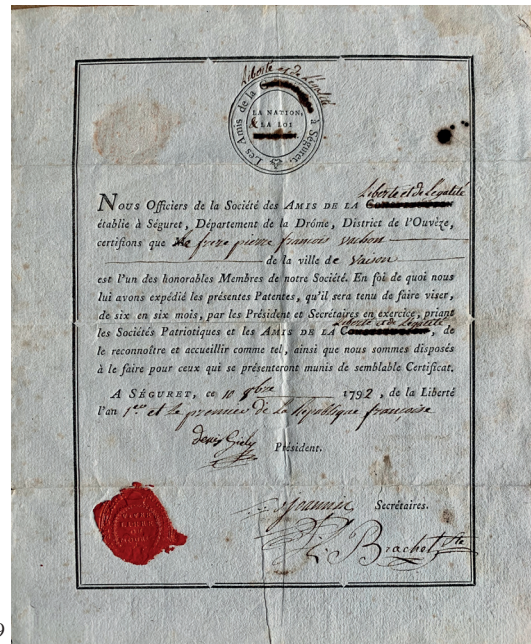 Liberté et de Légalité
Les Amis de la
à Séguret.
LA NATION,
& LA LOI
Liberté et de Légalité
NOUS Officiers de la Société des AMIS DE LA
établie à Séguret, Département de la Drôme, District de l'Ouvèze,
certifions que le frere pierre francois vachon
de la ville de vaison
est l'un des honorables Membres de notre Société. En foi de quoi nous
lui avons expédié les présentes Patentes, qu'il sera tenu de faire viser,
de six en six mois, par les Président et Secrétaires en exercice, priant
liberté et de légalité
les Sociétés Patriotiques et les AMIS DE LA , de
le reconnoître et accueillir comme tel, ainsi que nous sommes disposés
à le faire pour ceux qui se présenteront munis de semblable Certificat.
A SÉGURET, ce 10 8bre 1792, de la Liberté
l'an 1er et le premier de la République francoise
denis Giely
Président.
Joannin Secrétaires.
Brachet
VIVRE
LIBRE
OU
MOURIR
9